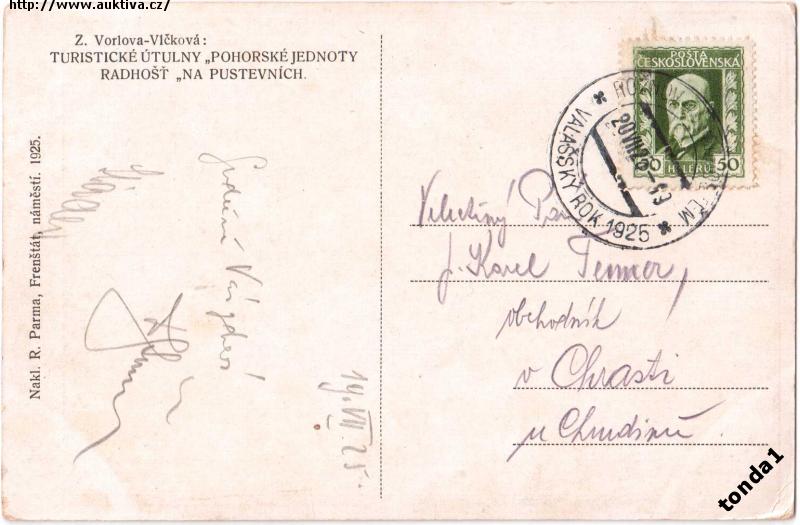 http://www.auktiva.cz/
Z. Vorlova-Vlčková:
TURISTICKÉ ÚTULNY „POHORSKÉ JEDNOTY
RADHOŠŤ „NA PUSTEVNÍCH.
Nakl. R. Parma, Frenštát, náměstí. 1925.
Srdečný
19.VII.25.
POŠTA
ČESKOSLOVENSKÁ
50 HALÉŘŮ 50
VALAŠSKÝ ROK 1925
20 VII 25
Velectěný Pan
J. Karel Temer,
obchodník
v Chrasti
u Chrudimě.
tonda1